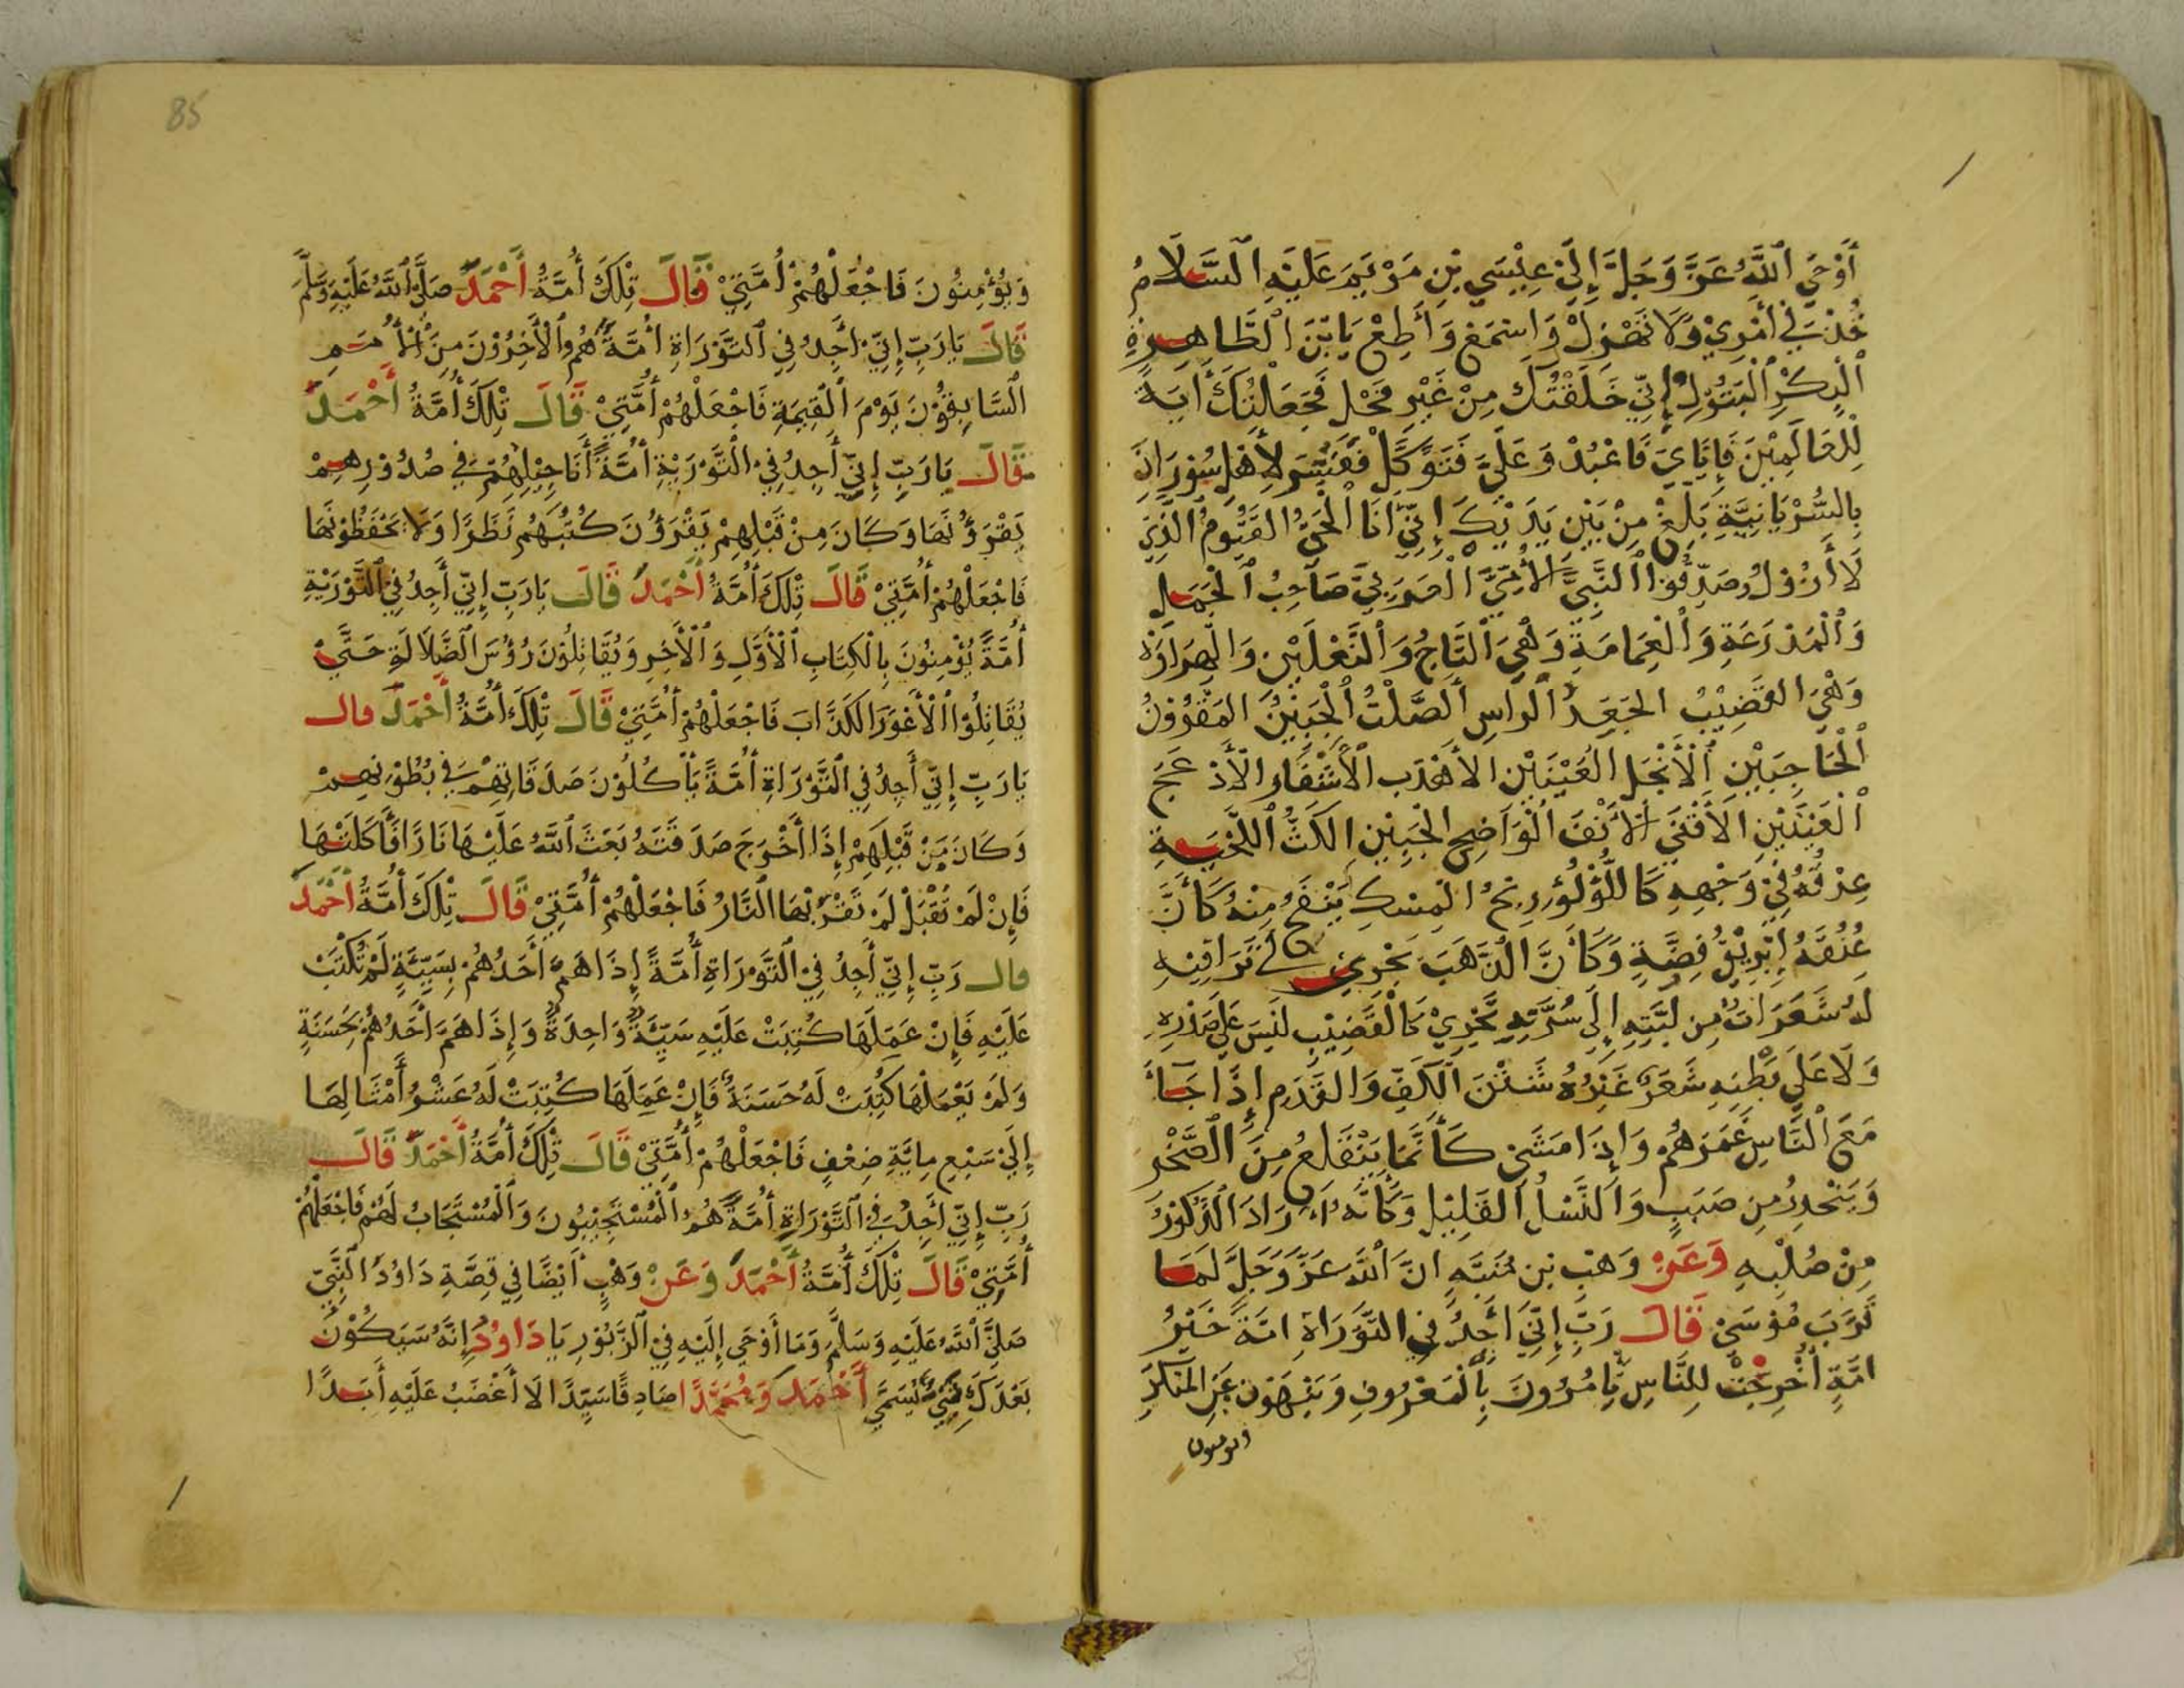 أَوْحَي اللَّهُ عَزَّ وَجَلَّ إِلَيْ عِيْسَي بْنِ مَرْيَمَ عَلَيْهِ السَّلَامُ
خُذْ فِي أَمْرِيْ وَلَا تَهْزِلْ وَاسْمَعْ وَأَطِعْ يَا بْنَ الطَّاهِرَةِ
الْبِكْرِ الْبَتُوْلِ إِنِّي خَلَقْتُكَ مِنْ غَيْرِ فَحْلٍ فَجَعَلْتُكَ أَيَةً
لِلْعَالَمِيْنَ فَإِيَّايَ فَاعْبُدْ وَعَلَيَّ فَتَوَكَّلْ فَفَسِّرْ لِأَهْلِ سُوْرَانَ
بِالسُّرْيَانِيَّةِ بَلِّغْ مِنْ بَيْنِ يَدَيْكَ إِنِّي أَنَا الْحَيُّ القَيُّومُ الَّذِيْ
لَا أَزُوْلُ وصَدِّقُوْا النَّبِيَّ الْأُمِّيَّ الْعَرَبِيَّ صَاحِبُ الْجَمَلِ
وَالْمَدْرَعَةِ وَالْعِمَامَةِ وَهْيَ التَّاجُ وَالنَّعْلَيْنِ وَالْهِرَاوَةِ
وَهْيَ القَضِيْبُ الجَعْدُ الرَاسِ الصَّلْتُ الْجَبِيْنِ المَقْرُوْنُ
الْحَاجِبَيْنِ الْأَنْجَلِ العَيْنَيْنِ الأَهْدَبِ الْأَشْفَارِ الْأَدْعَجِ
الْعَيْنَيْنِ الأَقْنَى الأَنْفَ الْوَاضِحِ الْجَبِيْنِ الكَثُّ اللِّحْيَةِ
عِرْقُهُ فِيْ وَجْهِهِ كَاللُّؤْلُؤِ رِيْحُ الْمِسْكِ يَنْفَحُ مِنْهُ كَأَنَّ
عُنُقَهُ إِبْرِيْقُ فِضَّةٍ وَكَأَنَّ الذَّهَبَ يَجْرِيْ في تَرَاقِيْهِ
لَهُ شَعَرَاتٌ مِن لَبَّتِهِ إِلَى سُرَّتِهِ تَجْرِيْ كَالْقَضِيْبِ لَيْسَ عَلَي صَدْرِهِ
وَلَا عَلَي بَطْنِهِ شَعَرٌ غَيْرُهُ شَثْنَ الْكَفِّ وَالقَدَمِ إِذَا جَاءَ
مَعَ النَّاسِ غَمَرَهُمْ وَإِذَا مَشَي كَأَنَّمَا يَتَقَلَّعُ مِنَ الصَّخْرِ
وَيَنْحَدِرُ مِن صَبَبٍ وَالنَّسْلُ القَلِيْلِ وَكَأَنَّهُ أَرَادَ الذُّكُوْرَ
مِنْ صُلْبِهِ وَعَنْ وَهْبِ بْنِ مُنَبِّهٍ انَّ اللَّهَ عَزَّ وَجَلَّ لَمَّا
قَرَّبَ مُوْسَيْ قَالَ رَبِّ إِنِّيْ أَجِدُ فِي التَّوْرَاةِ امَّةً خَيْرُ
امَّةٍ أُخْرِجَتْ لِلنَّاسِ يَامُرُونَ بِالْمَعْرُوفِ وَيَنْهَوْنَ عَنِ المُنْكَرِ
ويومنون
85
وَيُؤْمِنُونَ فَاجْعَلْهُمْ أُمَّتِيْ قَالَ تِلْكَ أُمَّةُ أَحْمَدَ صَلَّى اللَّهُ عَلَيْهِ وَسَلَّمَ
قَالَ يَارَبِّ إِنِّيْ أَجِدُ فِي التَّوْرَاةِ أُمَّةً هُمُ الْأَخِرُوْنَ مِنَ الْأُمَمِ
السَّابِقُوْنَ يَوْمَ الْقِيَمَةِ فَاجْعَلْهُمْ أُمَّتِيْ قَالَ تِلْكَ أُمَّةُ أَحْمَدَ
قَالَ يَارَبِّ إِنِّيْ أَجِدُ فِيْ التَّوْرَيةِ أُمَّةً أَنَاجِيْلِهُمْ فِي صُدُوْرِهِمْ
يَقْرَؤُنَهَا وَكَانَ مِنْ قَبْلِهِمْ يَقْرَؤُنَ كُتُبَهُم نَظَرًا وَلَا يَحْفَظُوْنَهَا
فَاجْعَلْهُمْ أُمَّتِيْ قَالَ تِلْكَ أُمَّةُ أَحْمَدَ قَالَ يَارَبِّ إِنِّي أَجِدُ فِيْ التَّوْرَيةِ
أُمَّةً يُؤْمِنُونَ بِالْكِتَابِ الْأَوَّلِ وَالْأَخِرِ وَيُقَاتِلُوْنَ رُؤُسَ الضَّلَالَةِ حَتَّيْ
يُقَاتِلُوْا الْأَعْوَرَ الكَذَّابَ فَاجْعَلْهُمْ أُمَّتِيْ قَالَ تِلْكَ أُمَّةُ أَحْمَدَ قال
يَارَبِّ إِنِّي أَجِدُ فِي التَّوْرَاةِ أُمَّةً يَأْكُلُوْنَ صَدَقَاتِهِمْ فِي بُطُوْنِهِمْ
وَكَانَ مَنْ قَبْلَهُمْ إِذَا أَخْرَجَ صَدَقَتَهُ بَعَثَ اللَّهُ عَلَيْهَا نَارًا فَأَكَلَتْهَا
فَإِنْ لَمْ تُقْبَلْ لَمْ تَقْرَبْهَا النَّارُ فَاجْعَلْهُمْ أُمَّتِيْ قَالَ تِلْكَ أُمَّةُ أَحْمَدَ
قال رَبِّ إِنِّيْ أَجِدُ فِيْ التَّوْرَاةِ أُمَّةً إِذَا هَمَّ أَحَدُهُمْ بِسَيِّئَةٍ لَمْ تُكْتَبْ
عَلَيْهِ فَإِنْ عَمِلَهَا كُتِبَتْ عَلَيْهِ سَيِّئَةٌ وَاحِدَةٌ وَإِذَا هَمَّ أَحَدُهُمْ بِحَسَنَةٍ
وَلَمْ يَعْمَلْهَا كُتِبَتْ لَهُ حَسَنَةٌ فَإِنْ عَمِلَهَا كُتِبَتْ لَهُ عَشْرُ أَمْثَالِهَا
إِلَيْ سَبْعِ مِايَةِ ضِعْفٍ فَاجْعَلْهُمْ أُمَّتِيْ قَالَ تِلْكَ أُمَّةُ أَحْمَدَ قَالَ
رَبِّ إِنِّيْ أَجِدُ فِي التَّوْرَاةِ أُمَّةً هُمُ الْمُسْتَجِيْبُونَ وَالْمُسْتَجَابُ لَهُمْ فَاجْعَلْهُمْ
أُمَّتِيْ قَالَ تِلْكَ أُمَّةُ أَحْمَدَ وَعَنْ وَهْبٍ أَيْضًا فِي قِصَّةِ دَاوُدَ النَّبِيّ
صَلَّى اللَّهُ عَلَيْهِ وَسَلَّمَ وَمَا أَوْحَي إِلَيْهِ فِيْ الزَّبُوْرِ يَا دَاوُدُ إِنَّهُ سَيَكُوْنُ
بَعْدَكَ نَبِيٌّ يُسَمَّي أَحْمَدَ وَمُحَمَّدًا صَادِقًا سَيِّدًا لَا أَغْضَبُ عَلَيْهِ أَبَدًا